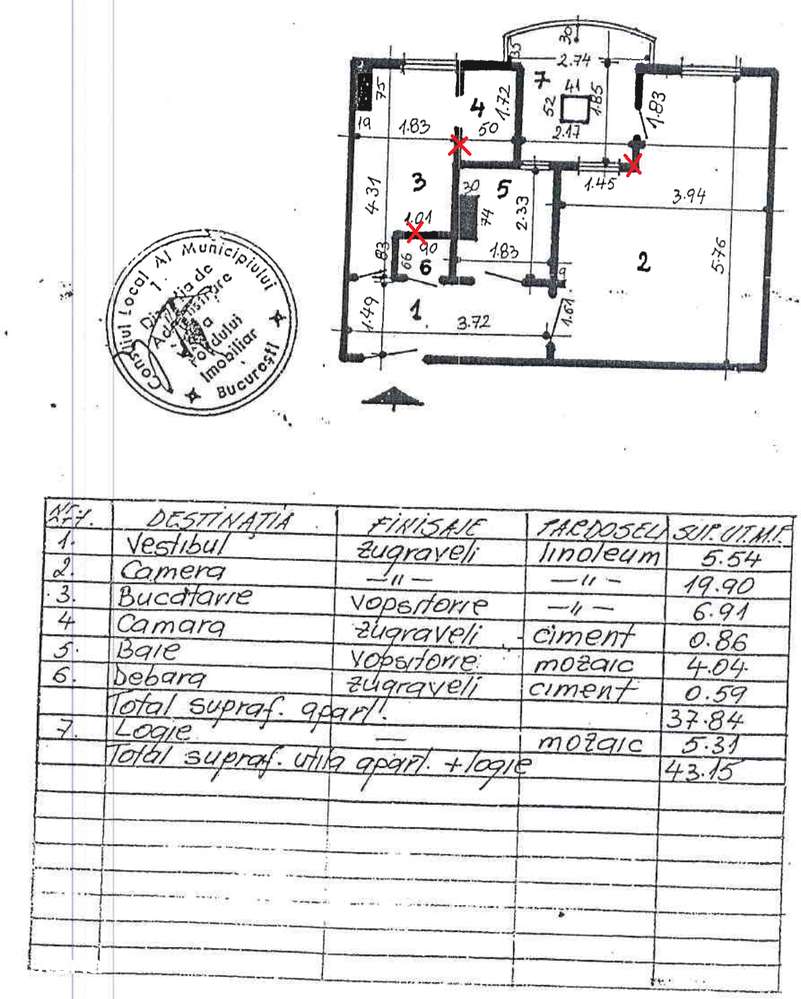 35
30
2.74
7
41
52
1.85
2.17
1.83
75
19
1.83
4
1.72
50
3
4.31
1.01
30
5
74
2.33
1.45
3.94
5.76
2
83
66
90
6
1.83
9
1
1.49
3.72
1.61
Consiliul Local Al Municipiului
București
Imobiliar
DESTINAȚIA FINISAJE PARDOSELI SUP.UT.M.P.
1. Vestibul zugraveli linoleum 5.54
2. Camera —"— —"— 19.90
3. Bucătarie vopsitorie —"— 6.91
4 Camara zugraveli ciment 0.86
5. Baie vopsitorie mozaic 4.04
6. Debara zugraveli ciment 0.59
Total supraf. apart. 37.84
7. Logie — mozaic 5.31
Total supraf. utila apart. + logie 43.15